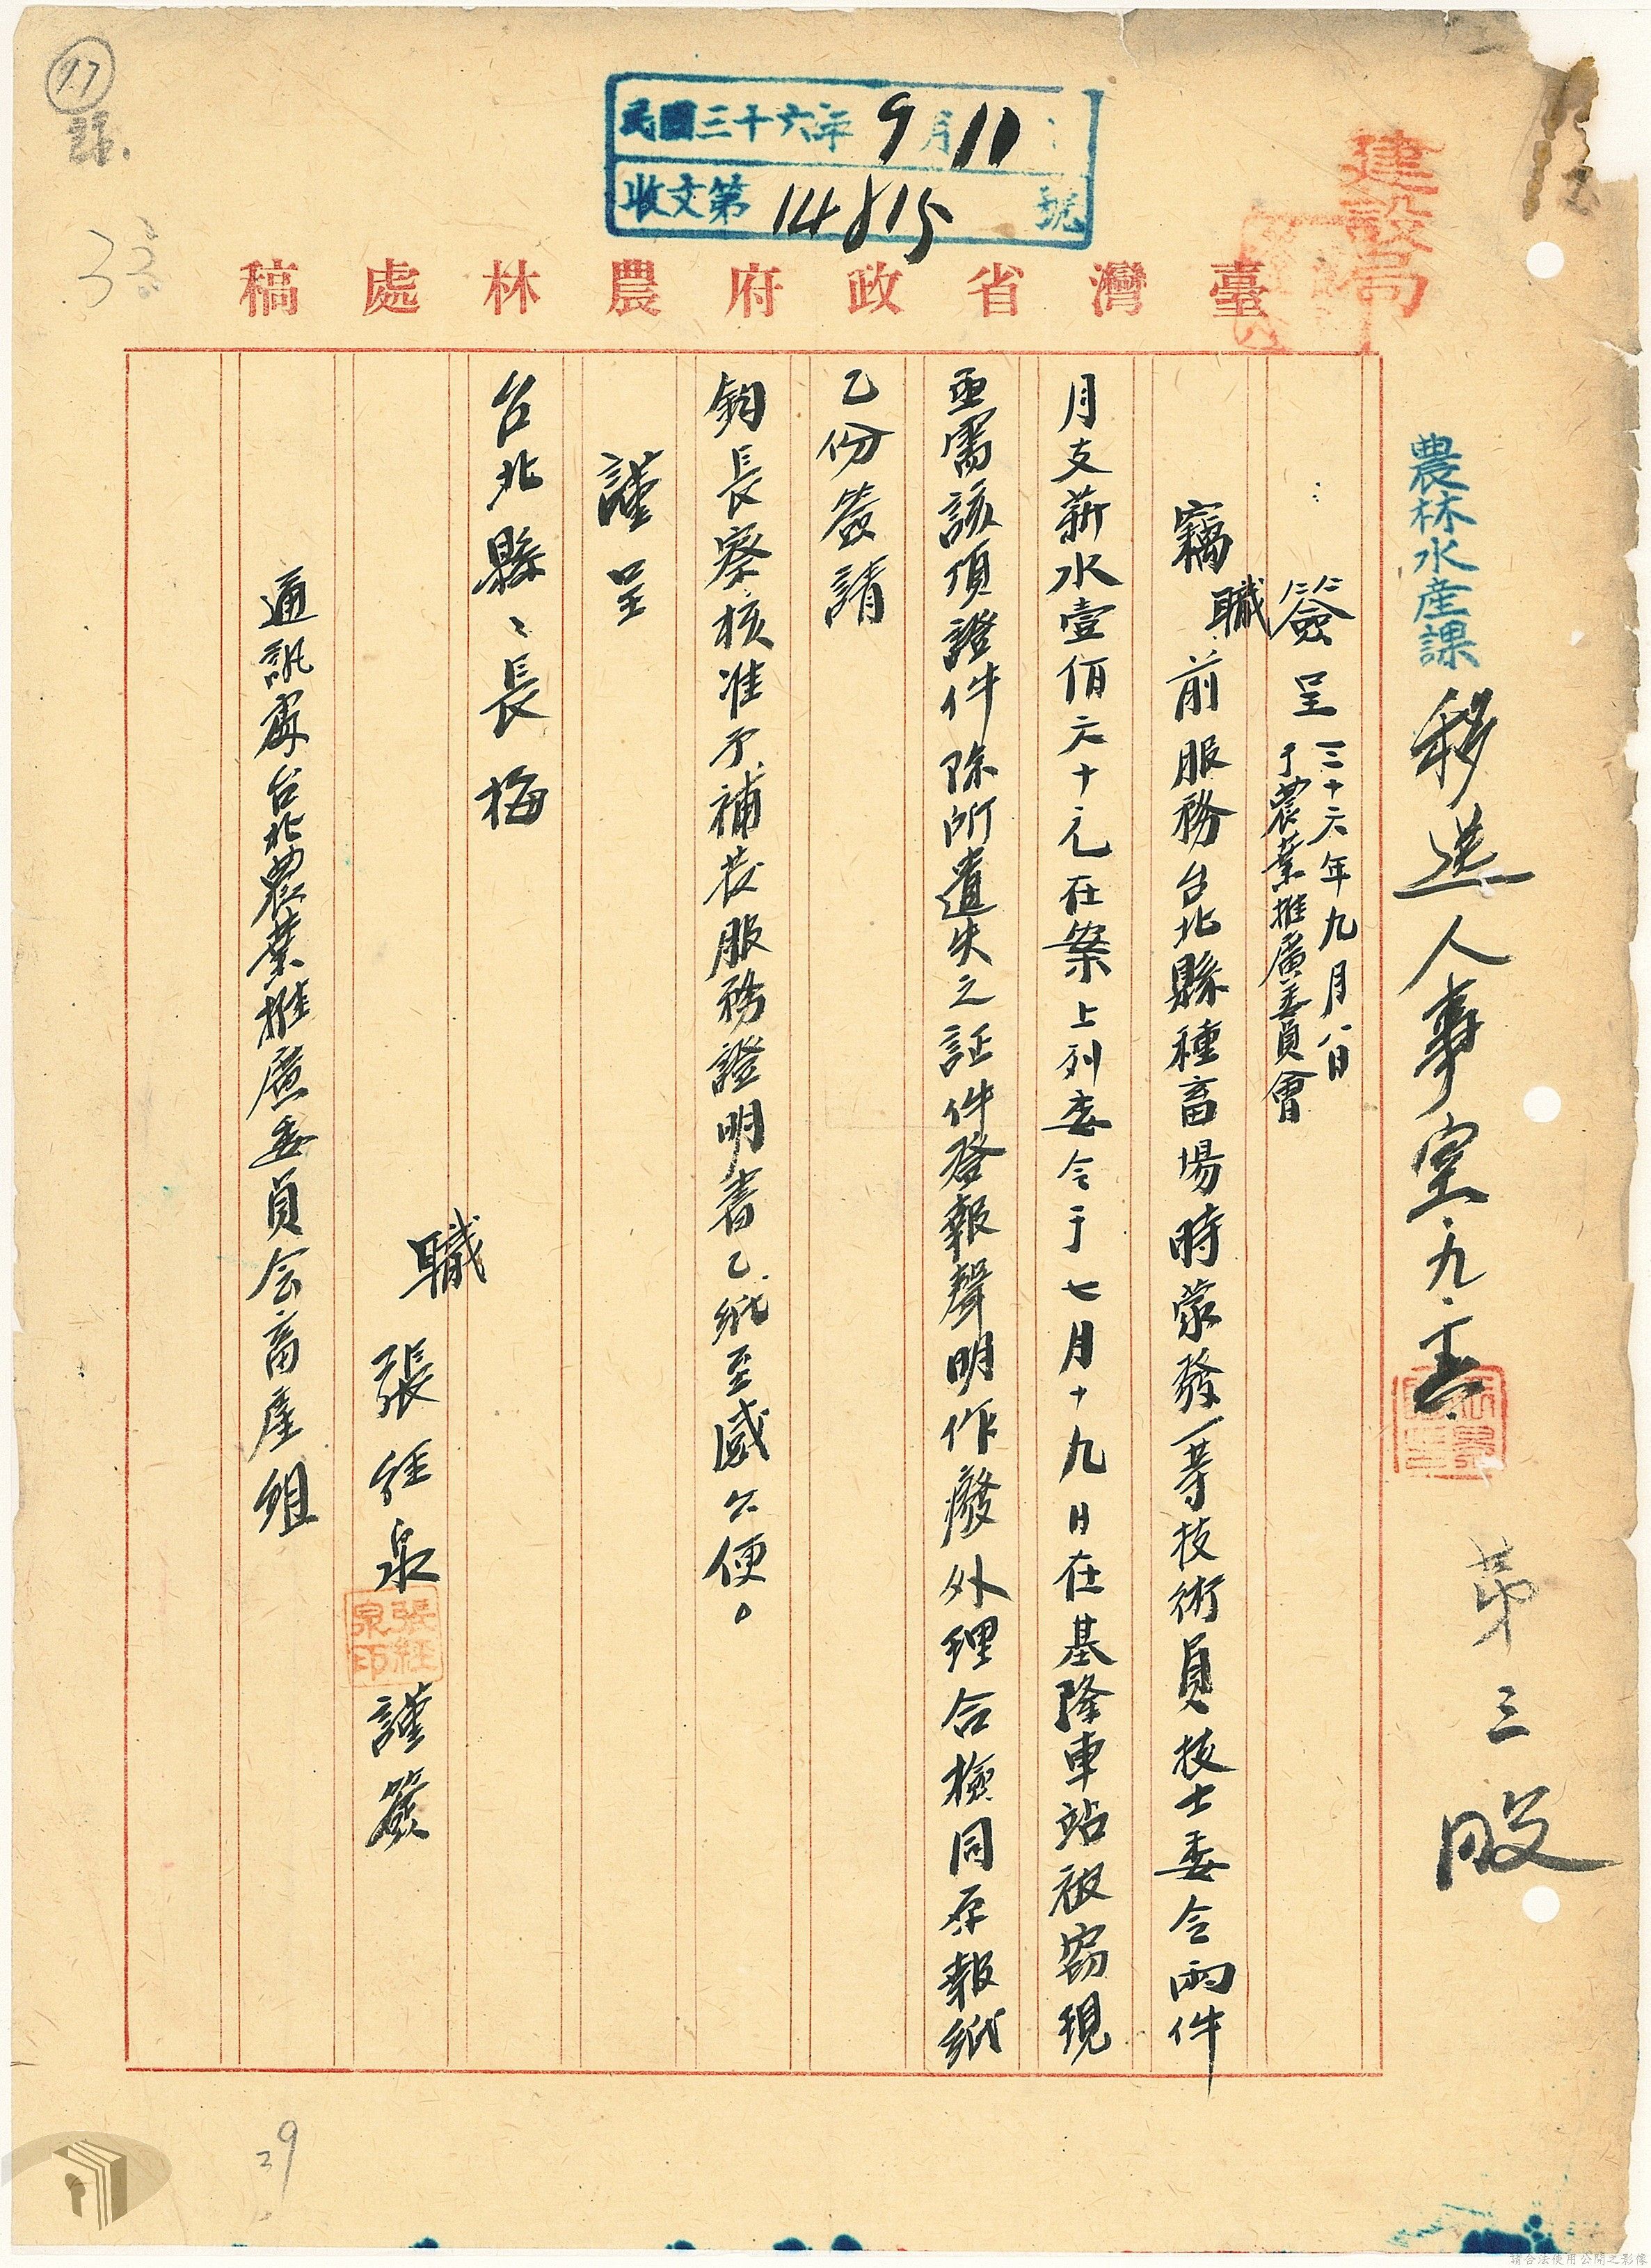 民國三十六年9月11
收文第14815號
建設局
臺灣省政府農林處稿
農林水産課
移送人事室九.
第三股
簽呈 三十六年九月八日
于農業推廣委員會
竊職前服務台北縣種畜場時蒙發一等技術員技士委令兩件
月支薪水壹佰六十元在案上列委令于七月十九日在基隆車站被窃現
亟需該項證件除所遺失之証件登報聲明作廢外理合檢同原報紙
乙份簽請
鈞長察核准予補发服務證明書乙紙至感公便。
謹呈
台北縣、長梅
職張経泉謹簽
張経泉印
通訊處台北農業推廣委員会畜產組
17
33
29
請合法使用公開之影像